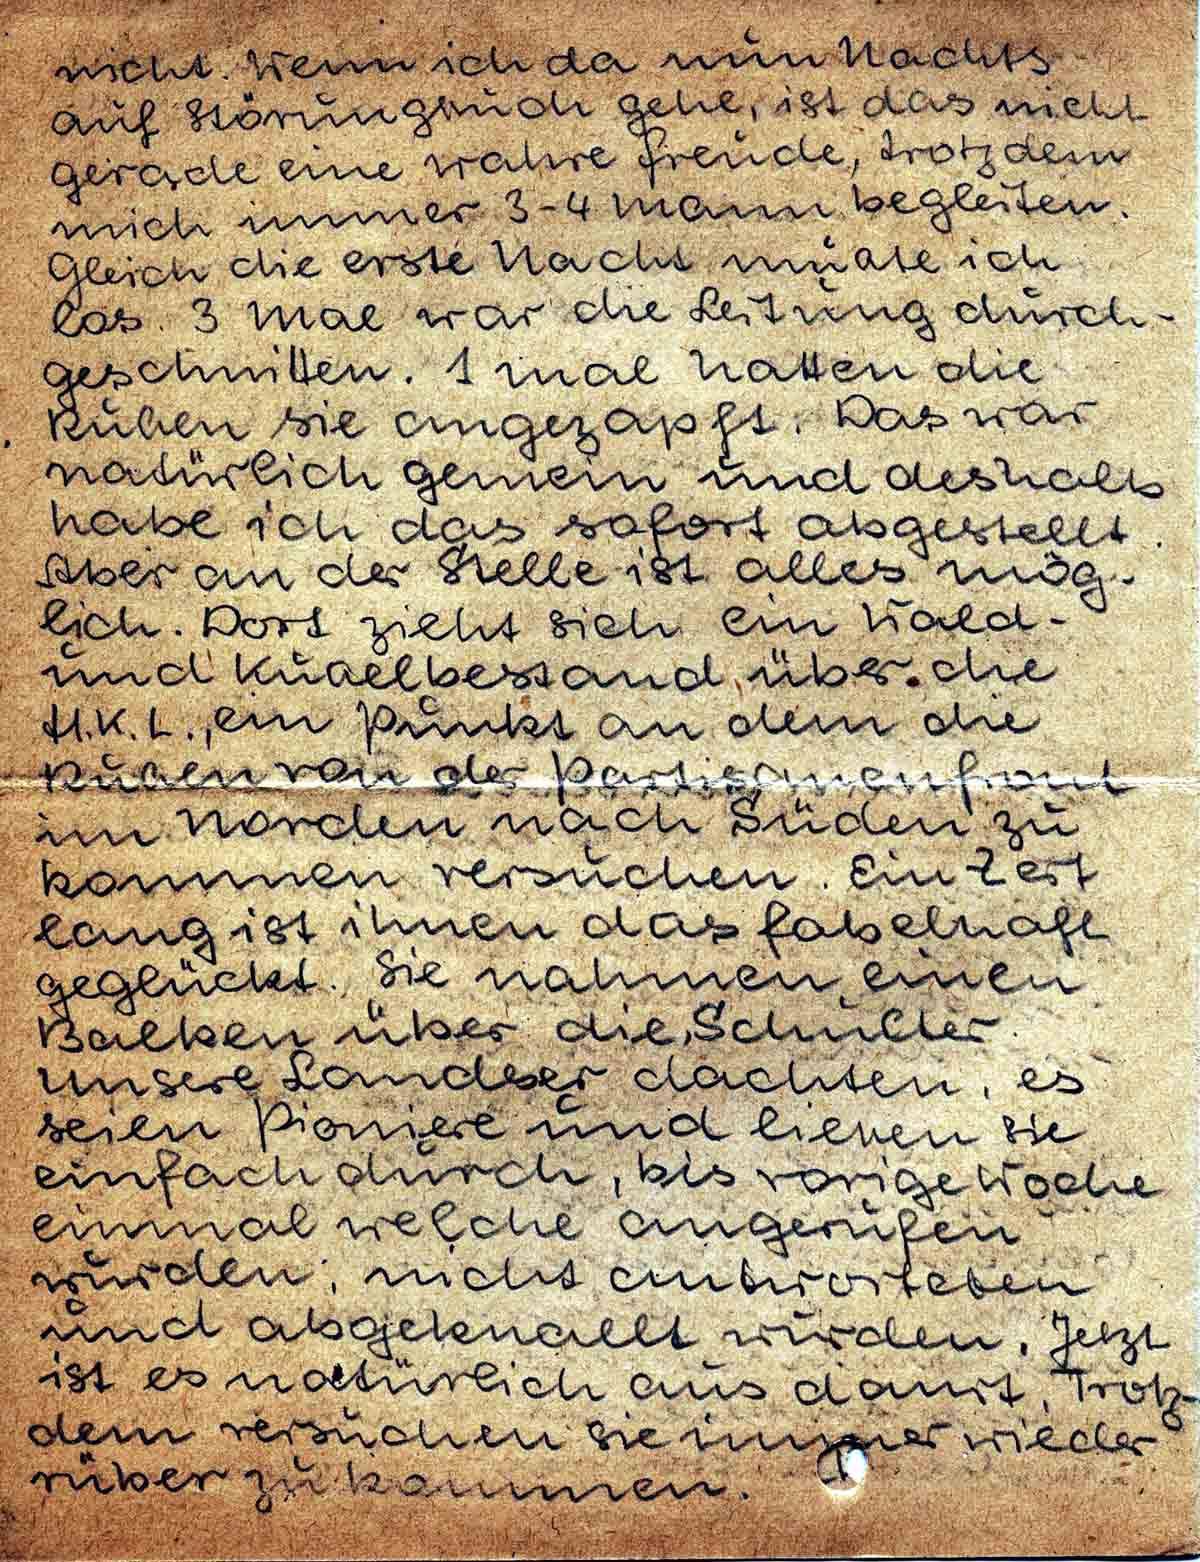 nicht. Wenn ich da nun Nachts
auf Störungsuch gehe, ist das nicht
gerade eine wahre Freude, trotzdem
mich immer 3-4 Mann begleiten.
Gleich die erste Nacht mußte ich
los. 3 Mal war die Leitung durch-
geschnitten. 1 mal hatten die
Ruben sie angezapft. Das war
natürlich gemein und deshalb
habe ich das sofort abgestellt.
Aber an der Stelle ist alles mög-
lich. Dort zieht sich ein Wald-
und Kusselbestand über die
H.K.L., ein Punkt an dem die
Ruben von der Partisanenfront
im Norden nach Süden zu
kommen versuchen. Ein Zeit
lang ist ihnen das fabelhaft
geglückt. Sie nahmen einen
Balken über die Schulter
unsere Landser dachten, es
seien Pioniere und ließen sie
einfach durch, bis vorige Woche
einmal welche angerufen
wurden; nicht antworteten
und abgeknallt wurden. Jetzt
ist es natürlich aus damit. Trotz-
dem versuchen sie immer wieder
rüber zu kommen.